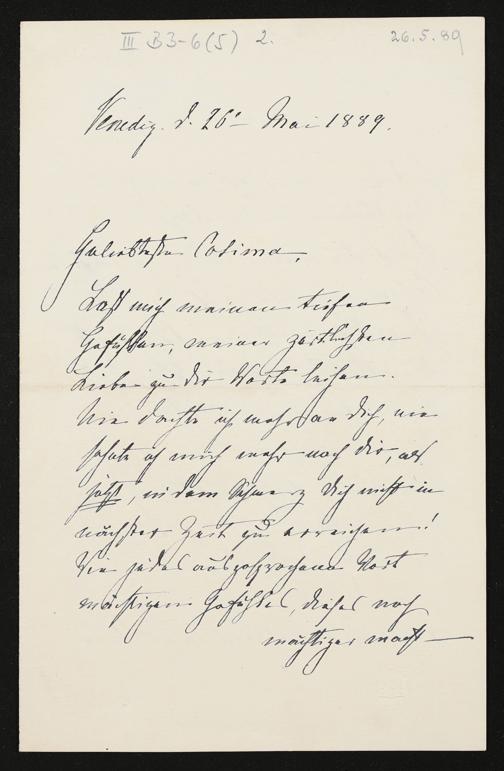 III B3-6(5) 2.
26.5.89
Venedig. d. 26t Mai 1889.
Geliebteste Cosima,
Laß mich meinen tiefen
Gefühlen, meiner zärtlichsten
Liebe zu dir Worte leihen.
Nie dachte ich mehr an dich, nie
sehnte ich mich mehr nach dir, als
jetzt, in dem Schmerz dich nicht in
nächster Zeit zu erreichen!
Wie jedes ausgesprochene Wort
mächtigen Gefühles, dieses noch
mächtiger macht —